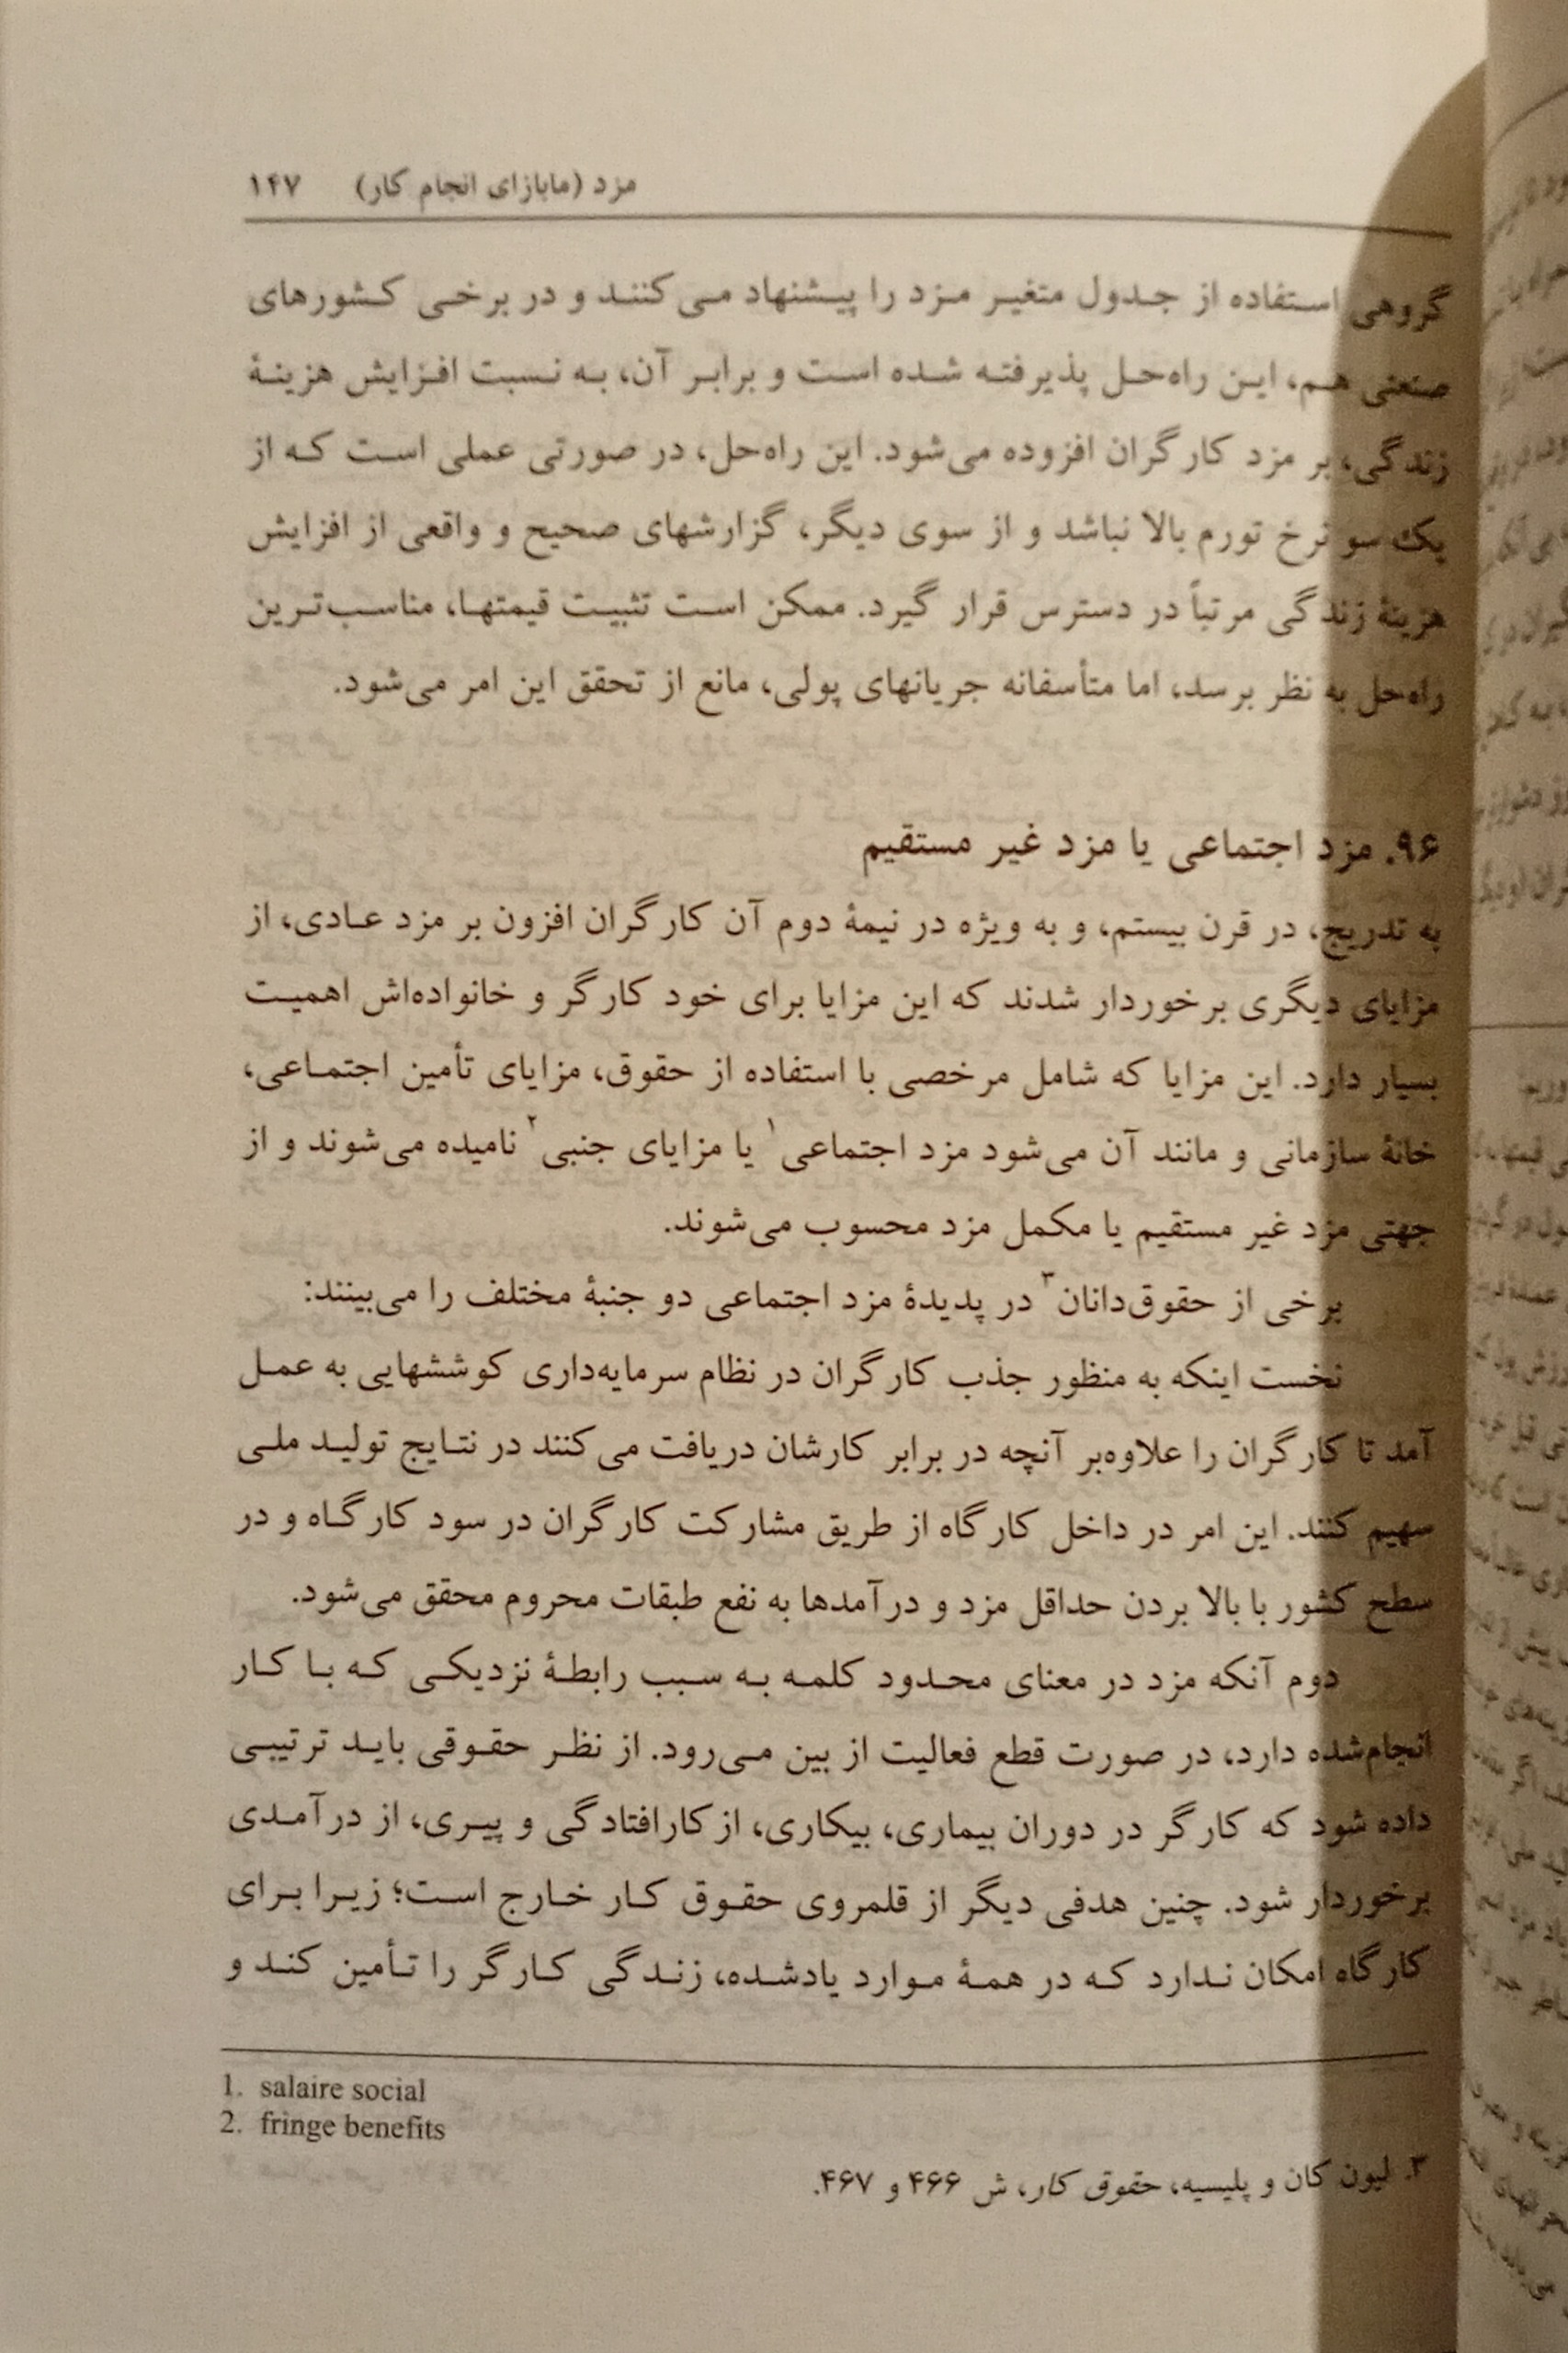 مزد (مابازای انجام کار) ۱۴۷
گروهی استفاده از جدول متغیر مزد را پیشنهاد می‌کنند و در برخی کشورهای
صنعتی هم، این راه‌حل پذیرفته شده است و برابر آن، به نسبت افزایش هزینهٔ
زندگی، بر مزد کارگران افزوده می‌شود. این راه‌حل، در صورتی عملی است که از
یک سو نرخ تورم بالا نباشد و از سوی دیگر، گزارشهای صحیح و واقعی از افزایش
هزینهٔ زندگی مرتباً در دسترس قرار گیرد. ممکن است تثبیت قیمتها، مناسب‌ترین
راه‌حل به نظر برسد، اما متأسفانه جریانهای پولی، مانع از تحقق این امر می‌شود.
۹۶. مزد اجتماعی یا مزد غیر مستقیم
به تدریج، در قرن بیستم، و به ویژه در نیمهٔ دوم آن کارگران افزون بر مزد عادی، از
مزایای دیگری برخوردار شدند که این مزایا برای خود کارگر و خانواده‌اش اهمیت
بسیار دارد. این مزایا که شامل مرخصی با استفاده از حقوق، مزایای تأمین اجتماعی،
خانهٔ سازمانی و مانند آن می‌شود مزد اجتماعی۱ یا مزایای جنبی۲ نامیده می‌شوند و از
جهتی مزد غیر مستقیم یا مکمل مزد محسوب می‌شوند.
برخی از حقوق‌دانان۳ در پدیدهٔ مزد اجتماعی دو جنبهٔ مختلف را می‌بینند:
نخست اینکه به منظور جذب کارگران در نظام سرمایه‌داری کوششهایی به عمل
آمد تا کارگران را علاوه‌بر آنچه در برابر کارشان دریافت می‌کنند در نتایج تولید ملی
سهیم کنند. این امر در داخل کارگاه از طریق مشارکت کارگران در سود کارگاه و در
سطح کشور با بالا بردن حداقل مزد و درآمدها به نفع طبقات محروم محقق می‌شود.
دوم آنکه مزد در معنای محدود کلمه به سبب رابطهٔ نزدیکی که با کار
انجام‌شده دارد، در صورت قطع فعالیت از بین می‌رود. از نظر حقوقی باید ترتیبی
داده شود که کارگر در دوران بیماری، بیکاری، ازکارافتادگی و پیری، از درآمدی
برخوردار شود. چنین هدفی دیگر از قلمروی حقوق کار خارج است؛ زیرا برای
کارگاه امکان ندارد که در همهٔ موارد یادشده، زندگی کارگر را تأمین کند و
1. salaire social
2. fringe benefits
۳. لیون کان و پلیسیه، حقوق کار، ش ۴۶۶ و ۴۶۷.